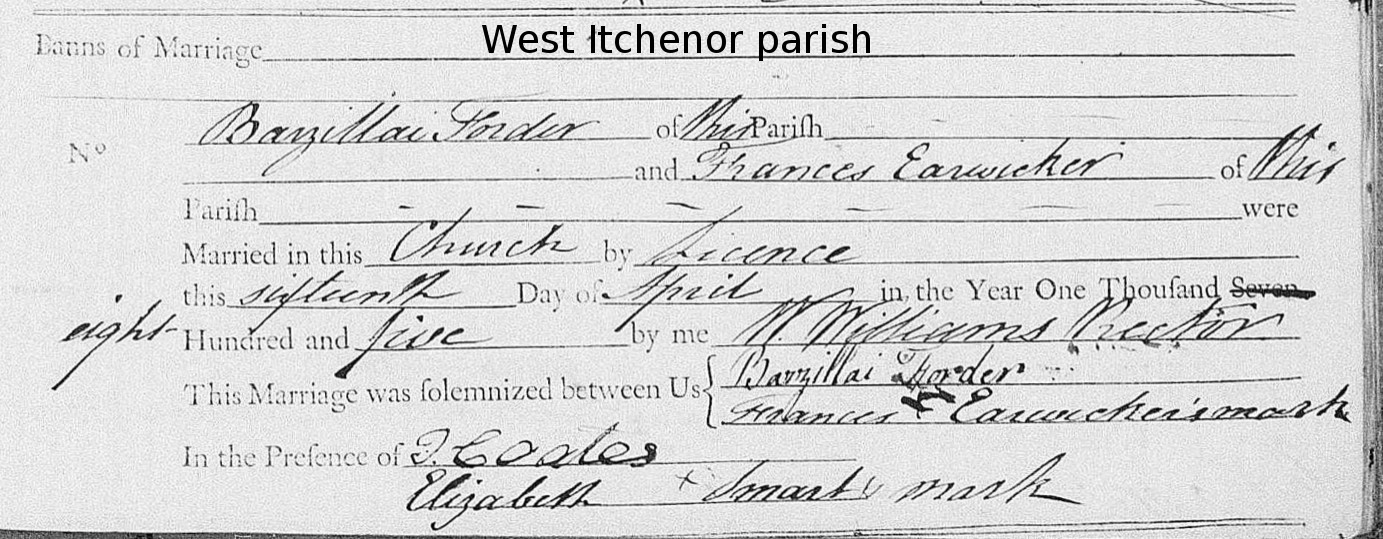 West Itchenor parish
Banns of Marriage
Barzillai Forder of this Pariſh
Nº
and Frances Earwicker of this
Pariſh were
Married in this Church by Licence
this sixteenth Day of April in the Year One Thouſand Seven
eight Hundred and five by me W. Williams Rector
This Marriage was ſolemnized between Us { Barzillai Forder
Frances + Earwicker's mark
In the Preſence of J. Coates
Elizabeth x Smart's mark